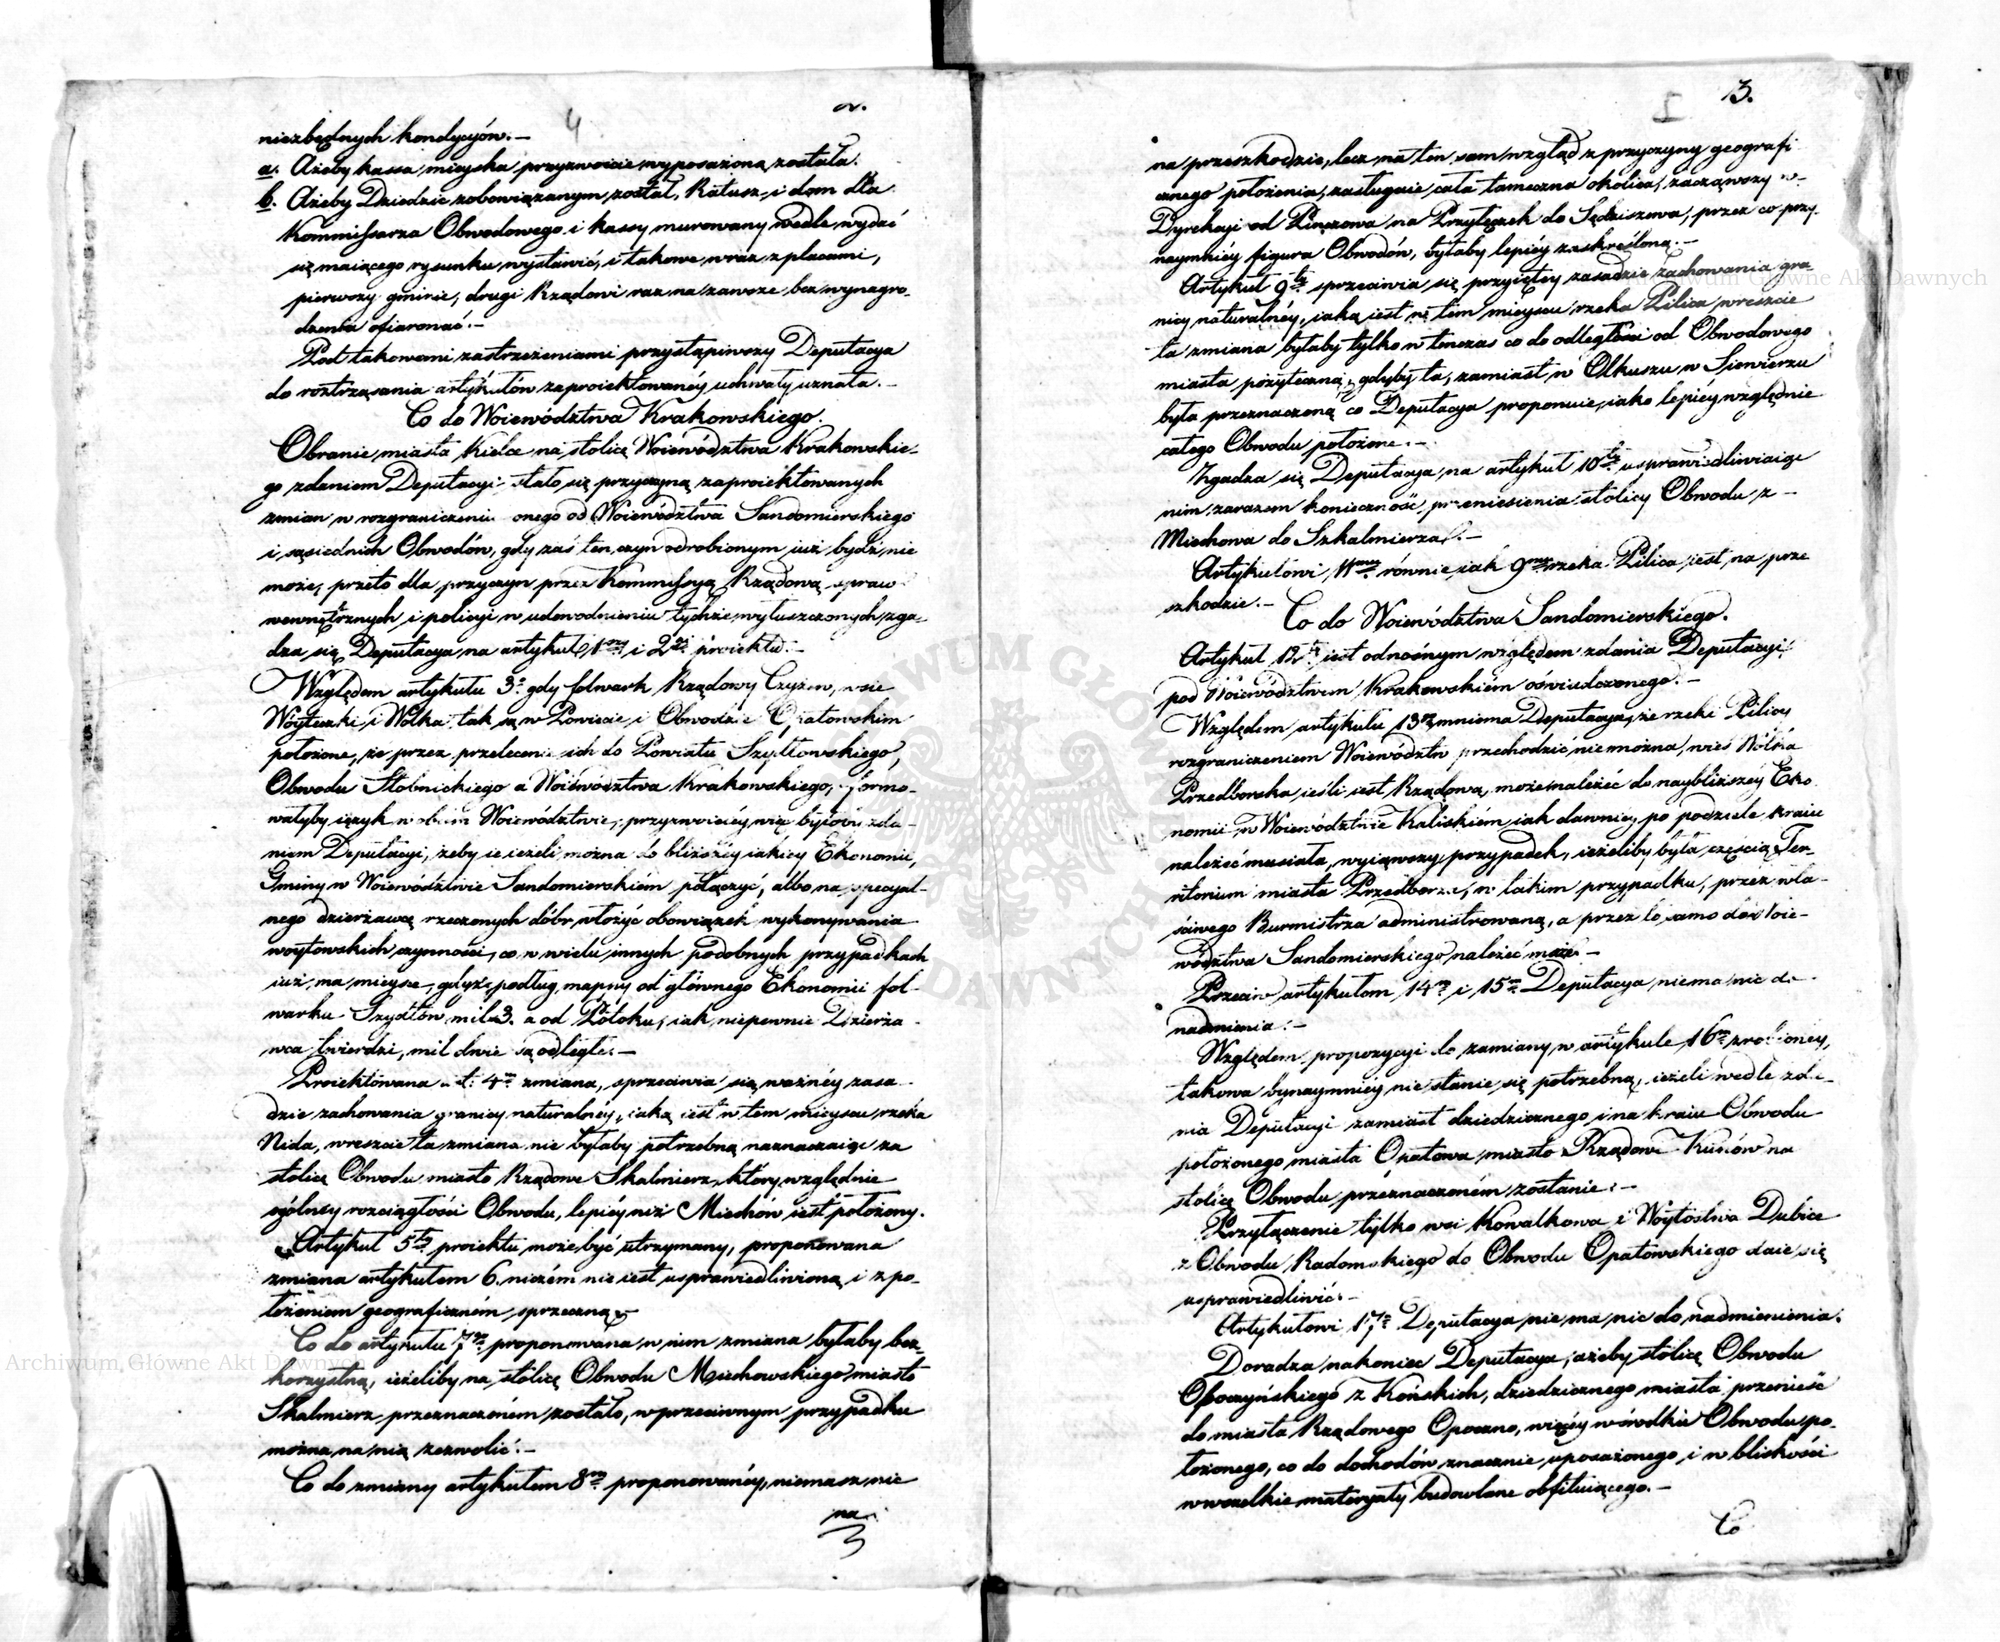 4
2.
niezbędnych kondycyów. —
a. Ażeby kassa mieyska przyzwoicie wyposażoną została.
b. Ażeby Dziedzic zobowiązanym został, Ratusz, i dom dla
Kommissarza Obwodowego i kassy murowany wedle wydać
się maiącego rysunku wystawić, i takowe wraz z placami,
pierwszy gminie, drugi Rządowi raz na zawsze bez wynagro-
dzenia ofiarować. —
Pod takowemi zastrzeżeniami przystąpiwszy Deputacya
do roztrząsania artykułów zaproiektowanéy uchwały uznała. —
Co do Województwa Krakowskiego.
Obranie miasta Kielce na stolicę Woiewództwa Krakowskie-
go zdaniem Deputacyi stało się przyczyną zaproiektowanych
zmian w rozgraniczeniu onego od Woiewództwa Sandomierskiego
i sąsiednich Obwodów, gdy zaś ten czyn odrobionym iuż bydź nie
może, przeto dla przyczyn przez Kommissyą Rządową spraw
wewnętrznych i policyi w udowodnieniu tychże wyłuszczonych zga-
dza się Deputacya na artykuł 1ny i 2gi proiektu. —
Względem artykułu 3o gdy folwark Rządowy Czyżów, wsie
Wóyteczki i Wólka tak są w Powiecie i Obwodzie Opatowskim
położone, że przez przelecenie ich do Powiatu Szydłowskiego,
Obwodu Stobnickiego a Woiewództwa Krakowskiego, formo-
wałyby ięzyk w obcém Woiewództwie, przyzwoiciéy więc byłoby zda-
niem Deputacyi, żeby ie ieżeli można do bliższéy iakiéy Ekonomii,
Gminy w Woiewództwie Sandomierskiém połączyć, albo na specyal-
nego dzierżawcę rzeczonych dóbr włożyć obowiązek wykonywania
woytowskich czynności, co w wielu innych podobnych przypadkach
iuż ma mieysce, gdyż podług mappy od głównego Ekonomii fol-
warku Szydłów mil 3. a od Potoku, iak niepewnie Dzierża-
wca twierdzi, mil dwie są odległe. —
Proiektowana art: 4m zmiana, sprzeciwia się ważnéy zasa-
dzie zachowania granicy naturalnéy, iaką iest w tem mieyscu rzeka
Nida, wreszcie ta zmiana nie byłaby potrzebną naznaczaiąc za
stolicę Obwodu miasto Rządowe Skalmierz, który względnie
ogólney rozciągłości Obwodu, lepiéy niż Miechów iest położony.
Artykuł 5ty proiektu może być utrzymany, proponowana
zmiana artykułem 6. niczém nie iest usprawiedliwioną i z po-
łożeniem geograficzném sprzeczną. —
Co do artykułu 7go proponowana w nim zmiana byłaby bez-
korzystną, ieżeliby na stolicę Obwodu Miechowskiego miasto
Skalmierz przeznaczoném zostało, w przeciwnym przypadku
można na nią zezwolić. —
Co do zmiany artykułem 8m proponowanéy, niemasz nic
na
3.
na przeszkodzie, lecz na ten sam wzgląd z przyczyny geografi
cznego położenia, zasługuie cała tameczna okolica, zacząwszy w
Dyrekcyi od Pinczowa na Przyłęczek do Sędziszowa, przez co przy-
naymniéy figura Obwodów, byłaby lepiéy zaskreśloną. —
Artykuł 9ty sprzeciwia się przyiętey zasadzie zachowania gra-
nicy naturalnéy, iaką iest w tém mieyscu rzeka Pilica, wreszcie
ta zmiana byłaby tylko wtenczas co do odległości od Obwodowego
miasta pożyteczną, gdyby ta, zamiast w Olkuszu w Siewierzu
była przeznaczoną co Deputacya proponuie, iako lepiéy względnie
całego Obwodu położone. —
Zgadza się Deputacya na artykuł 10ty usprawiedliwiaiąc
nim zarazem konieczność przeniesienia stolicy Obwodu z —
Miechowa do Szkalmierza. —
Artykułowi 11mu równie iak 9mu rzeka Pilica iest na prze
szkodzie. —
Co do Woiewództwa Sandomierskiego.
Artykuł 12ty iest odnośnym względem zdania Deputacyi,
pod Woiewództwem Krakowskiém oświadczonego. —
Względem artykułu 13go mniema Deputacya, że rzeki Pilicy
rozgraniczeniem Woiewództw przechodzić nie można, wieś Wólka
Przedborska ieśli iest Rządową, może należeć do naybliższéy Eko
nomii w Woiewództwie Kaliskiém iak dawniey, po podziele kraiu
należeć musiała, wyiąwszy przypadek, ieżeliby była częścią Ter-
ritorium miasta Przedborza, w takim przypadku, przez wła-
ściwego Burmistrza administrowaną, a przez to samo do Woie-
wództwa Sandomierskiego należeć może —
Przeciw artykułom 14m i 15m Deputacya niema nic do
nadmienia. —
Względem propozycyi do zamiany w artykule 16m zrobioney,
takowa bynaymniéy nie stanie się potrzebną, ieżeli wedle zda-
nia Deputacyi zamiast dziedzicznego i na kraiu Obwodu
położonego miasta Opatowa, miasto Rządowe Kunów na
stolicę Obwodu przeznaczoném zostanie. —
Przyłączenie tylko wsi Kowalkowa i Woytostwa Dubice
z Obwodu Radomskiego do Obwodu Opatowskiego daie się
usprawiedliwić. —
Artykułowi 17mu Deputacya nie ma nic do nadmienienia.
Doradza nakoniec Deputacya, ażeby stolicę Obwodu
Opoczyńskiego z Końskich, dziedzicznego miasta przenieść
do miasta Rządowego Opoczno, więcéy w środku Obwodu po-
łożonego, co do dochodów znacznie uposażonego, i w bliskości
w wszelkie materyały budowlane obfituiącego. —
Co
Archiwum Główne Akt Dawnych
Archiwum Główne Akt Dawnych
ARCHIWUM GŁÓWNE AKT DAWNYCH